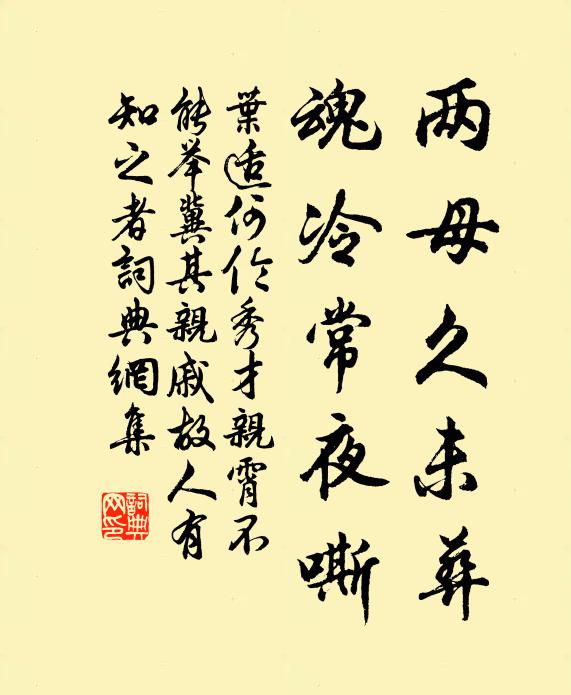 两母久未葬
魂冷常夜嘶
葉适何伶秀才親霄不
能举冀其親戚故人有
知之者詞典網集
詞典
网印